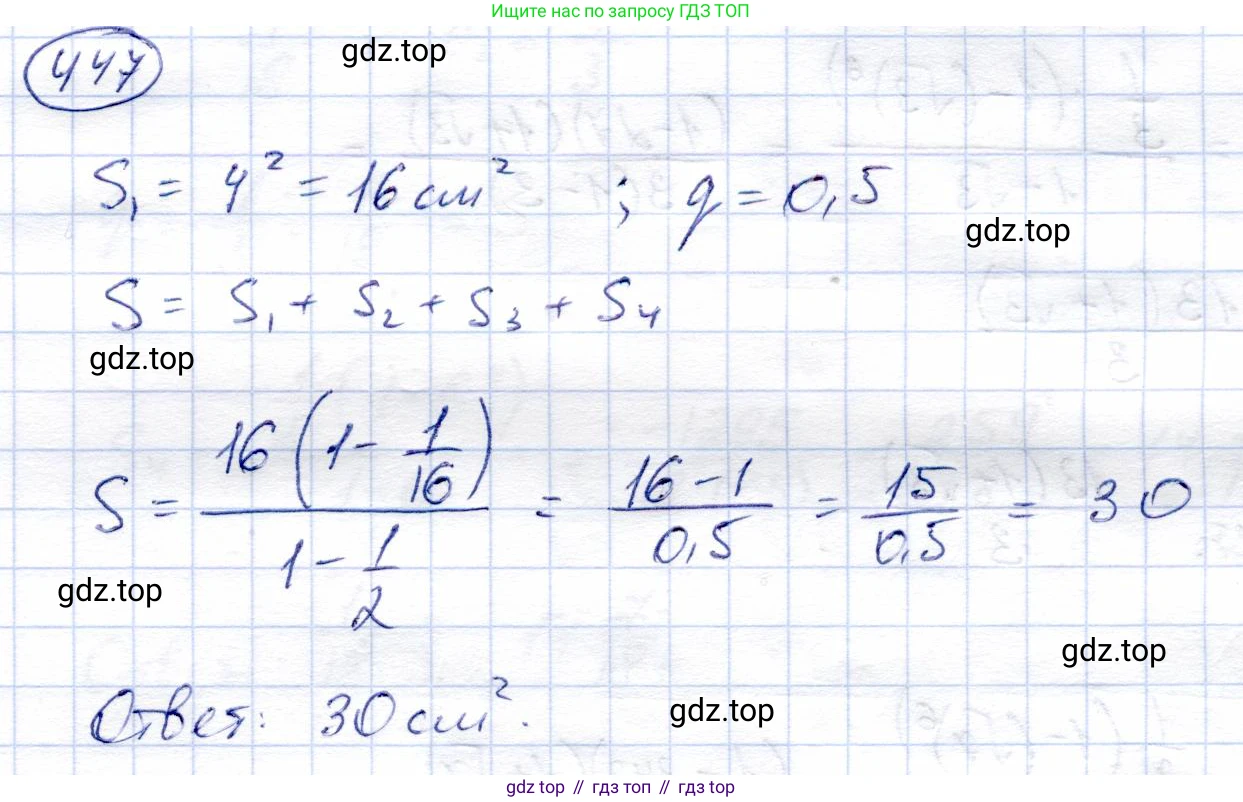 Ищите нас по запросу ГДЗ ТОП
447
gdz.top
S₁ = 4² = 16 см² ; q = 0,5
gdz.top
S = S₁ + S₂ + S₃ + S₄
gdz.top
S = 16(1 - 1/16) / (1 - 1/2) = (16 - 1)/0,5 = 15/0,5 = 30
gdz.top
gdz.top
Ответ: 30 см².
gdz.top
gdz top // гдз топ // gdz top